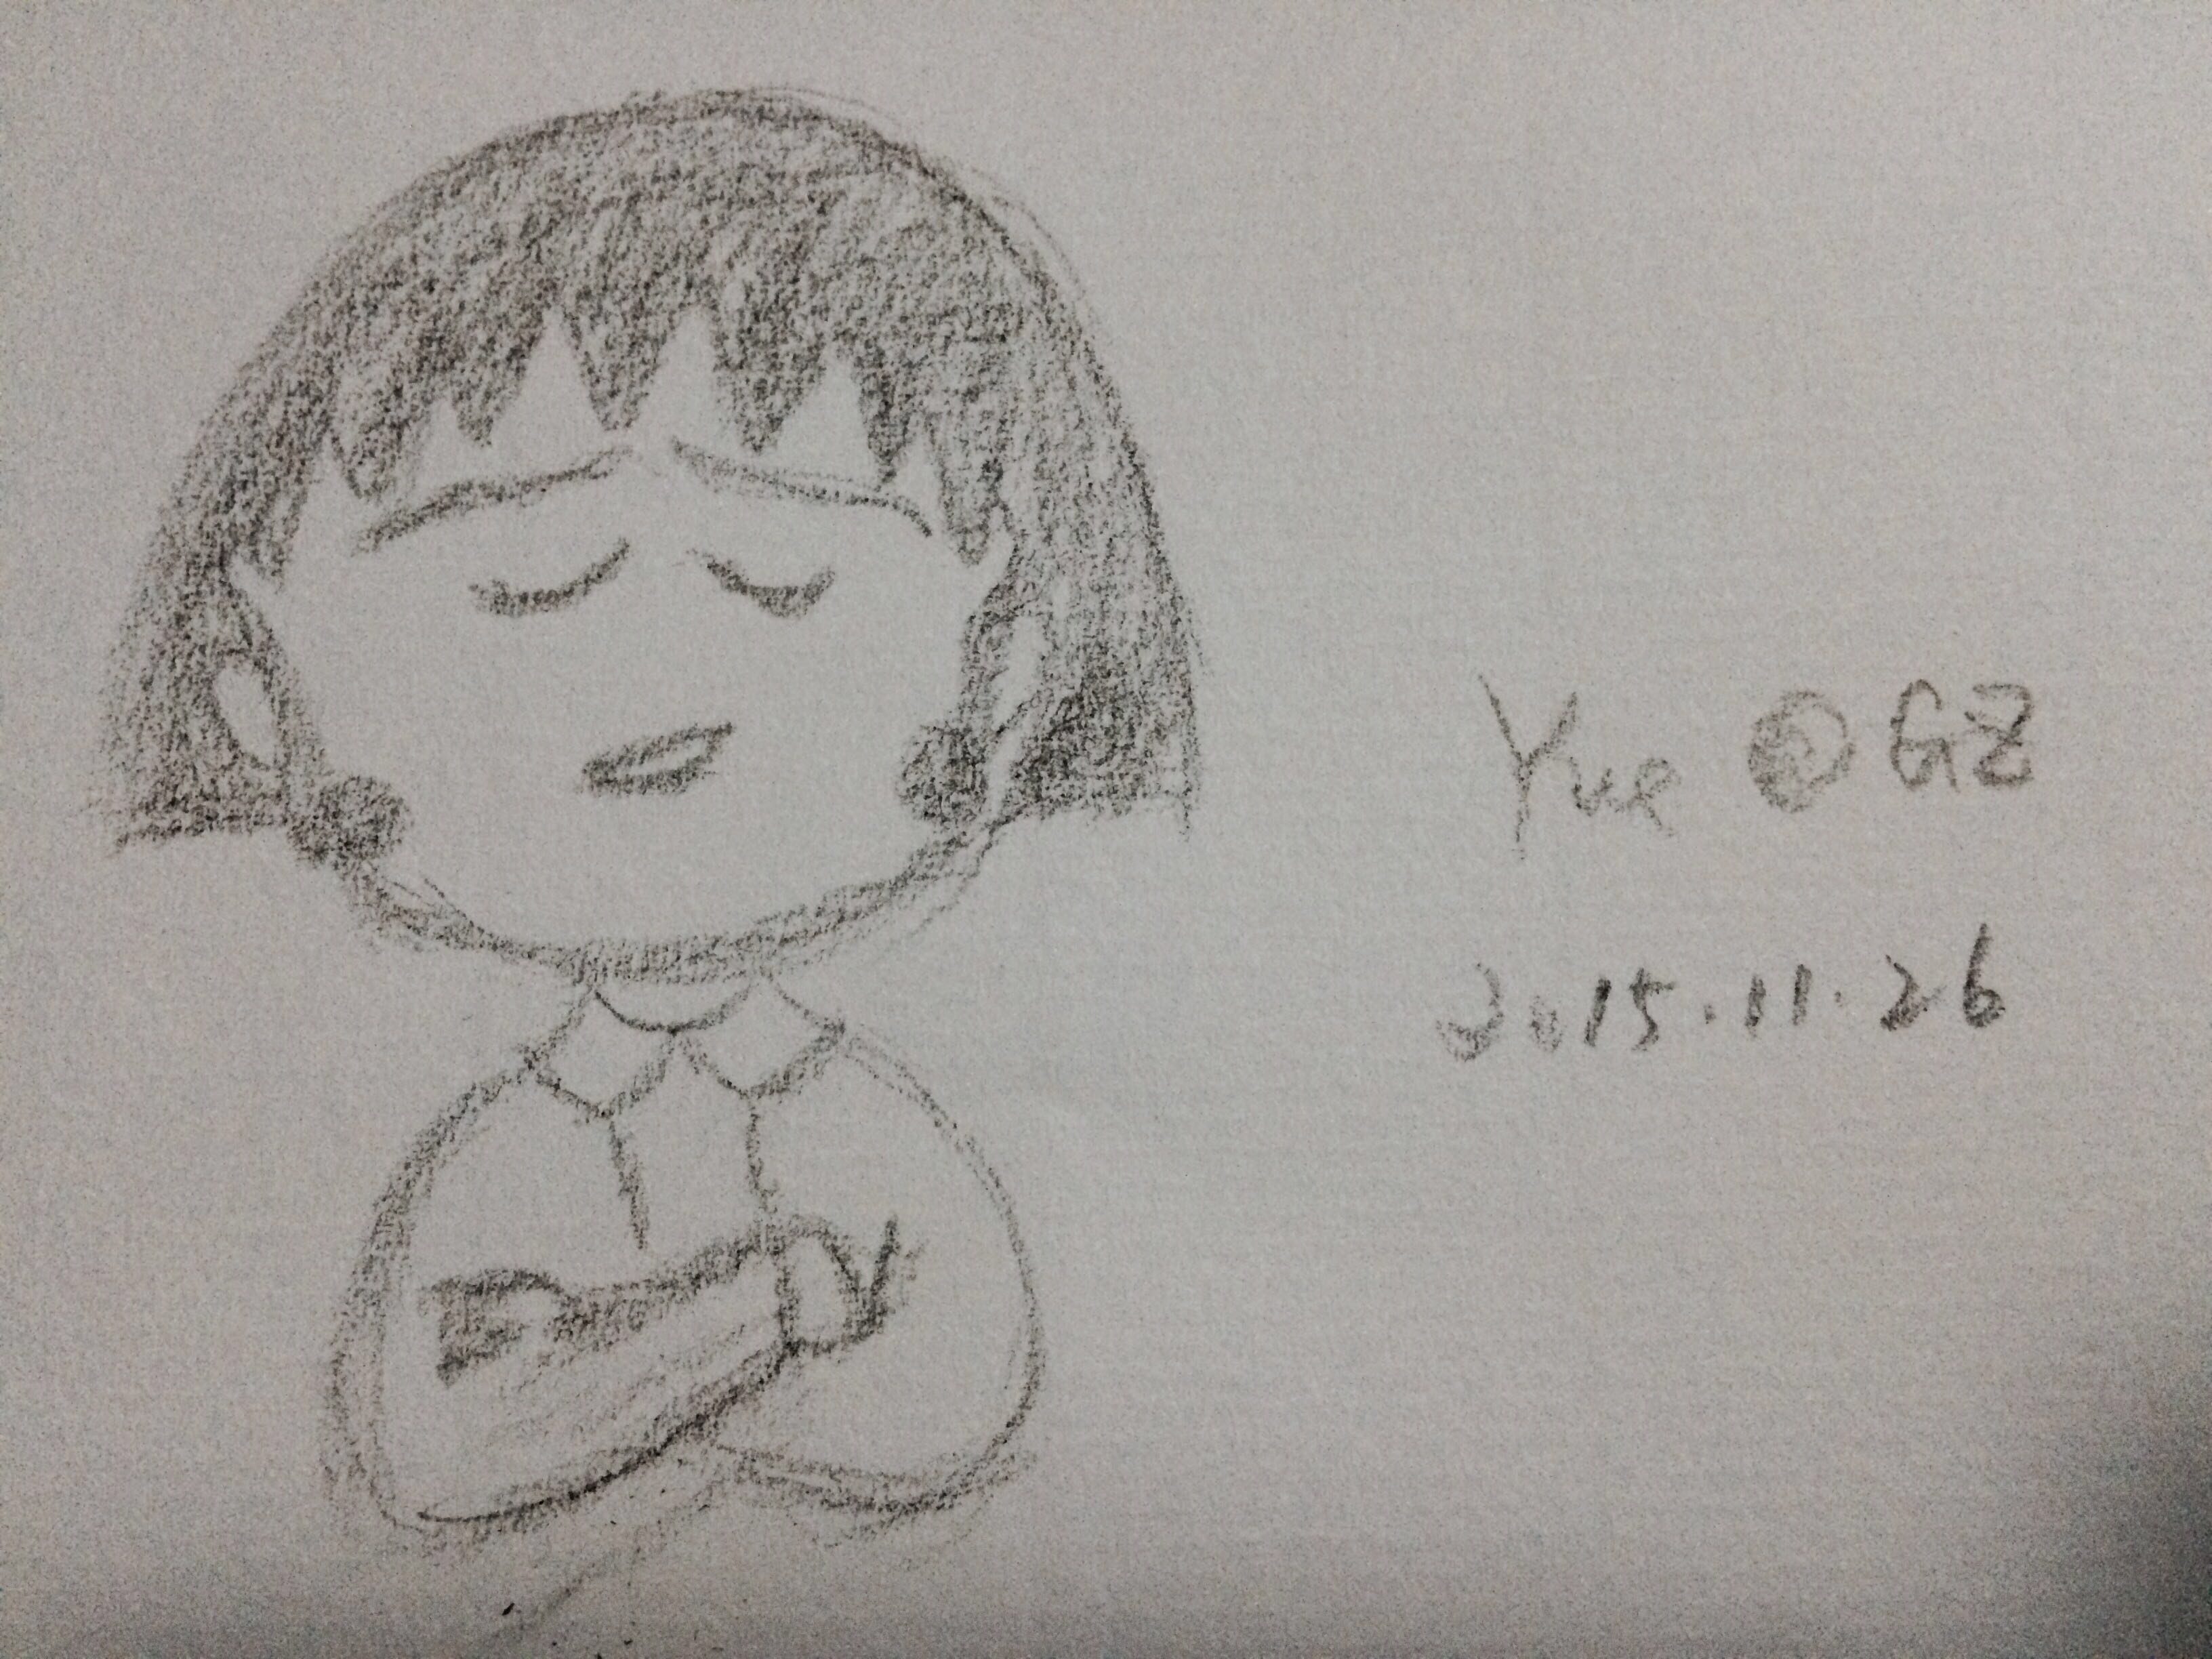 Yue @ GZ
2015.11.26